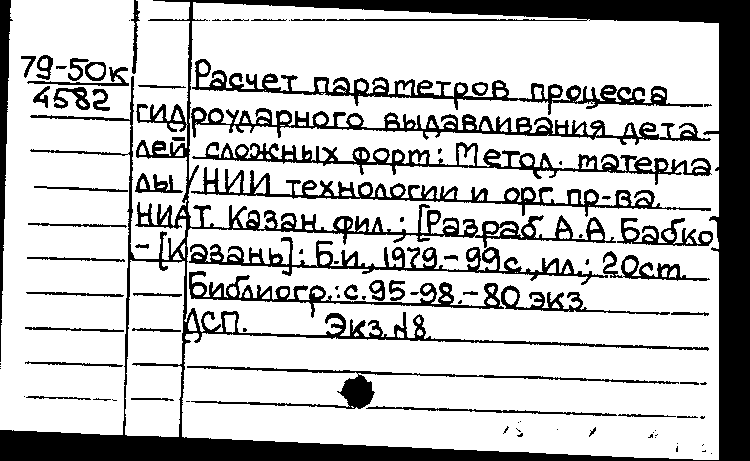 79-50к
4582
Расчет параметров процесса
гидроударного выдавливания дета-
лей сложных форт: Метод. материа-
лы /НИИ технологии и орг. пр-ва.
НИАТ. Казан. фил.; [Разраб. А.А. Бабко]
- [Казань]: Б.и., 1979.- 99с., ил.; 20см.
Библиогр.: с.95-98.- 80 экз.
ДСП. Экз.№8.